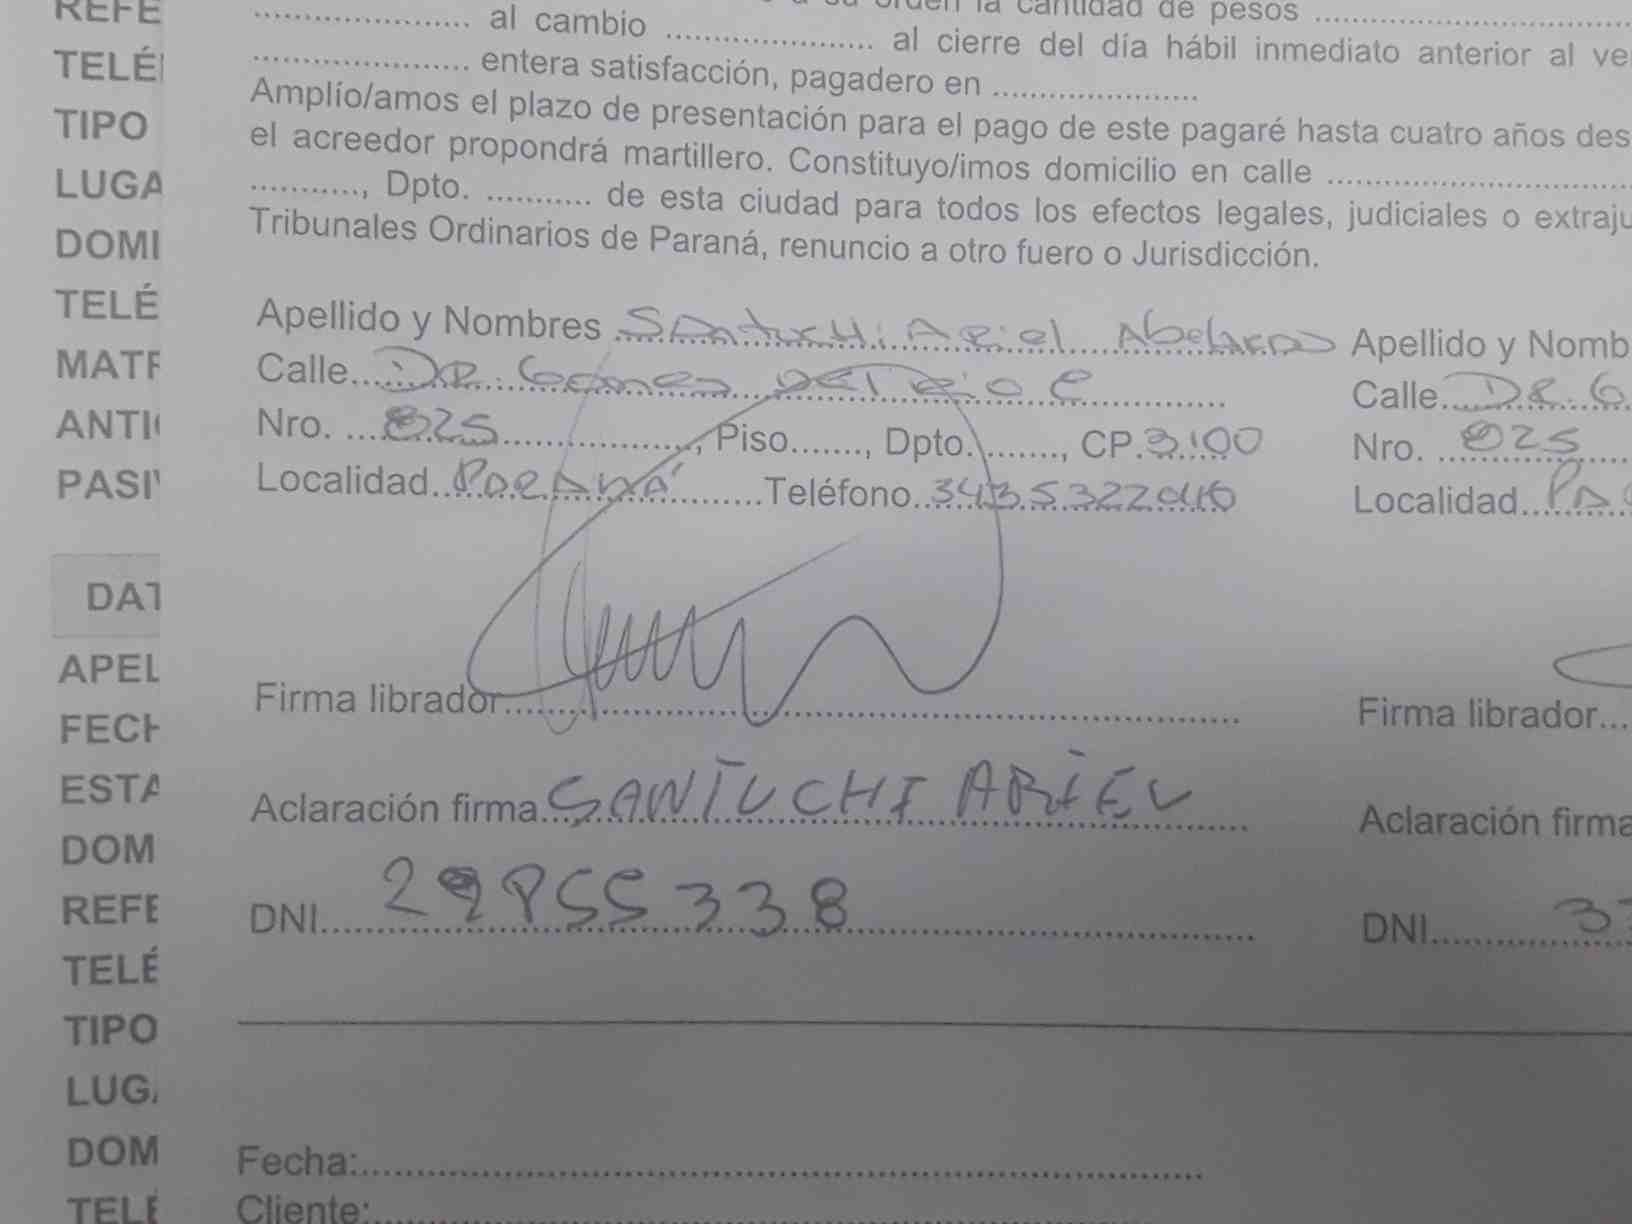 REFE
TELÉ
TIPO
LUGA
DOMI
TELÉ
MATR
ANTI
PASIV
DAT
APEL
FECH
ESTA
DOM
REFE
TELÉ
TIPO
LUGA
DOM
TELÉ
la cantidad de pesos ........................
........................ al cambio ...................... al cierre del día hábil inmediato anterior al ve
........................ entera satisfacción, pagadero en ......................
Amplío/amos el plazo de presentación para el pago de este pagaré hasta cuatro años des
el acreedor propondrá martillero. Constituyo/imos domicilio en calle ........................
............, Dpto. ........... de esta ciudad para todos los efectos legales, judiciales o extraju
Tribunales Ordinarios de Paraná, renuncio a otro fuero o Jurisdicción.
Apellido y Nombres SAntucHi Ariel Abelardo
Calle DR. Gomez
Nro. 825, Piso......., Dpto........, CP. 3100
Localidad PARANÁ Teléfono
Firma librador
Aclaración firma SANTUCHI ARIEL
DNI 29855338
Apellido y Nomb
Calle DR. G
Nro. 825
Localidad PA
Firma librador
Aclaración firma
DNI 3
Fecha:
Cliente: